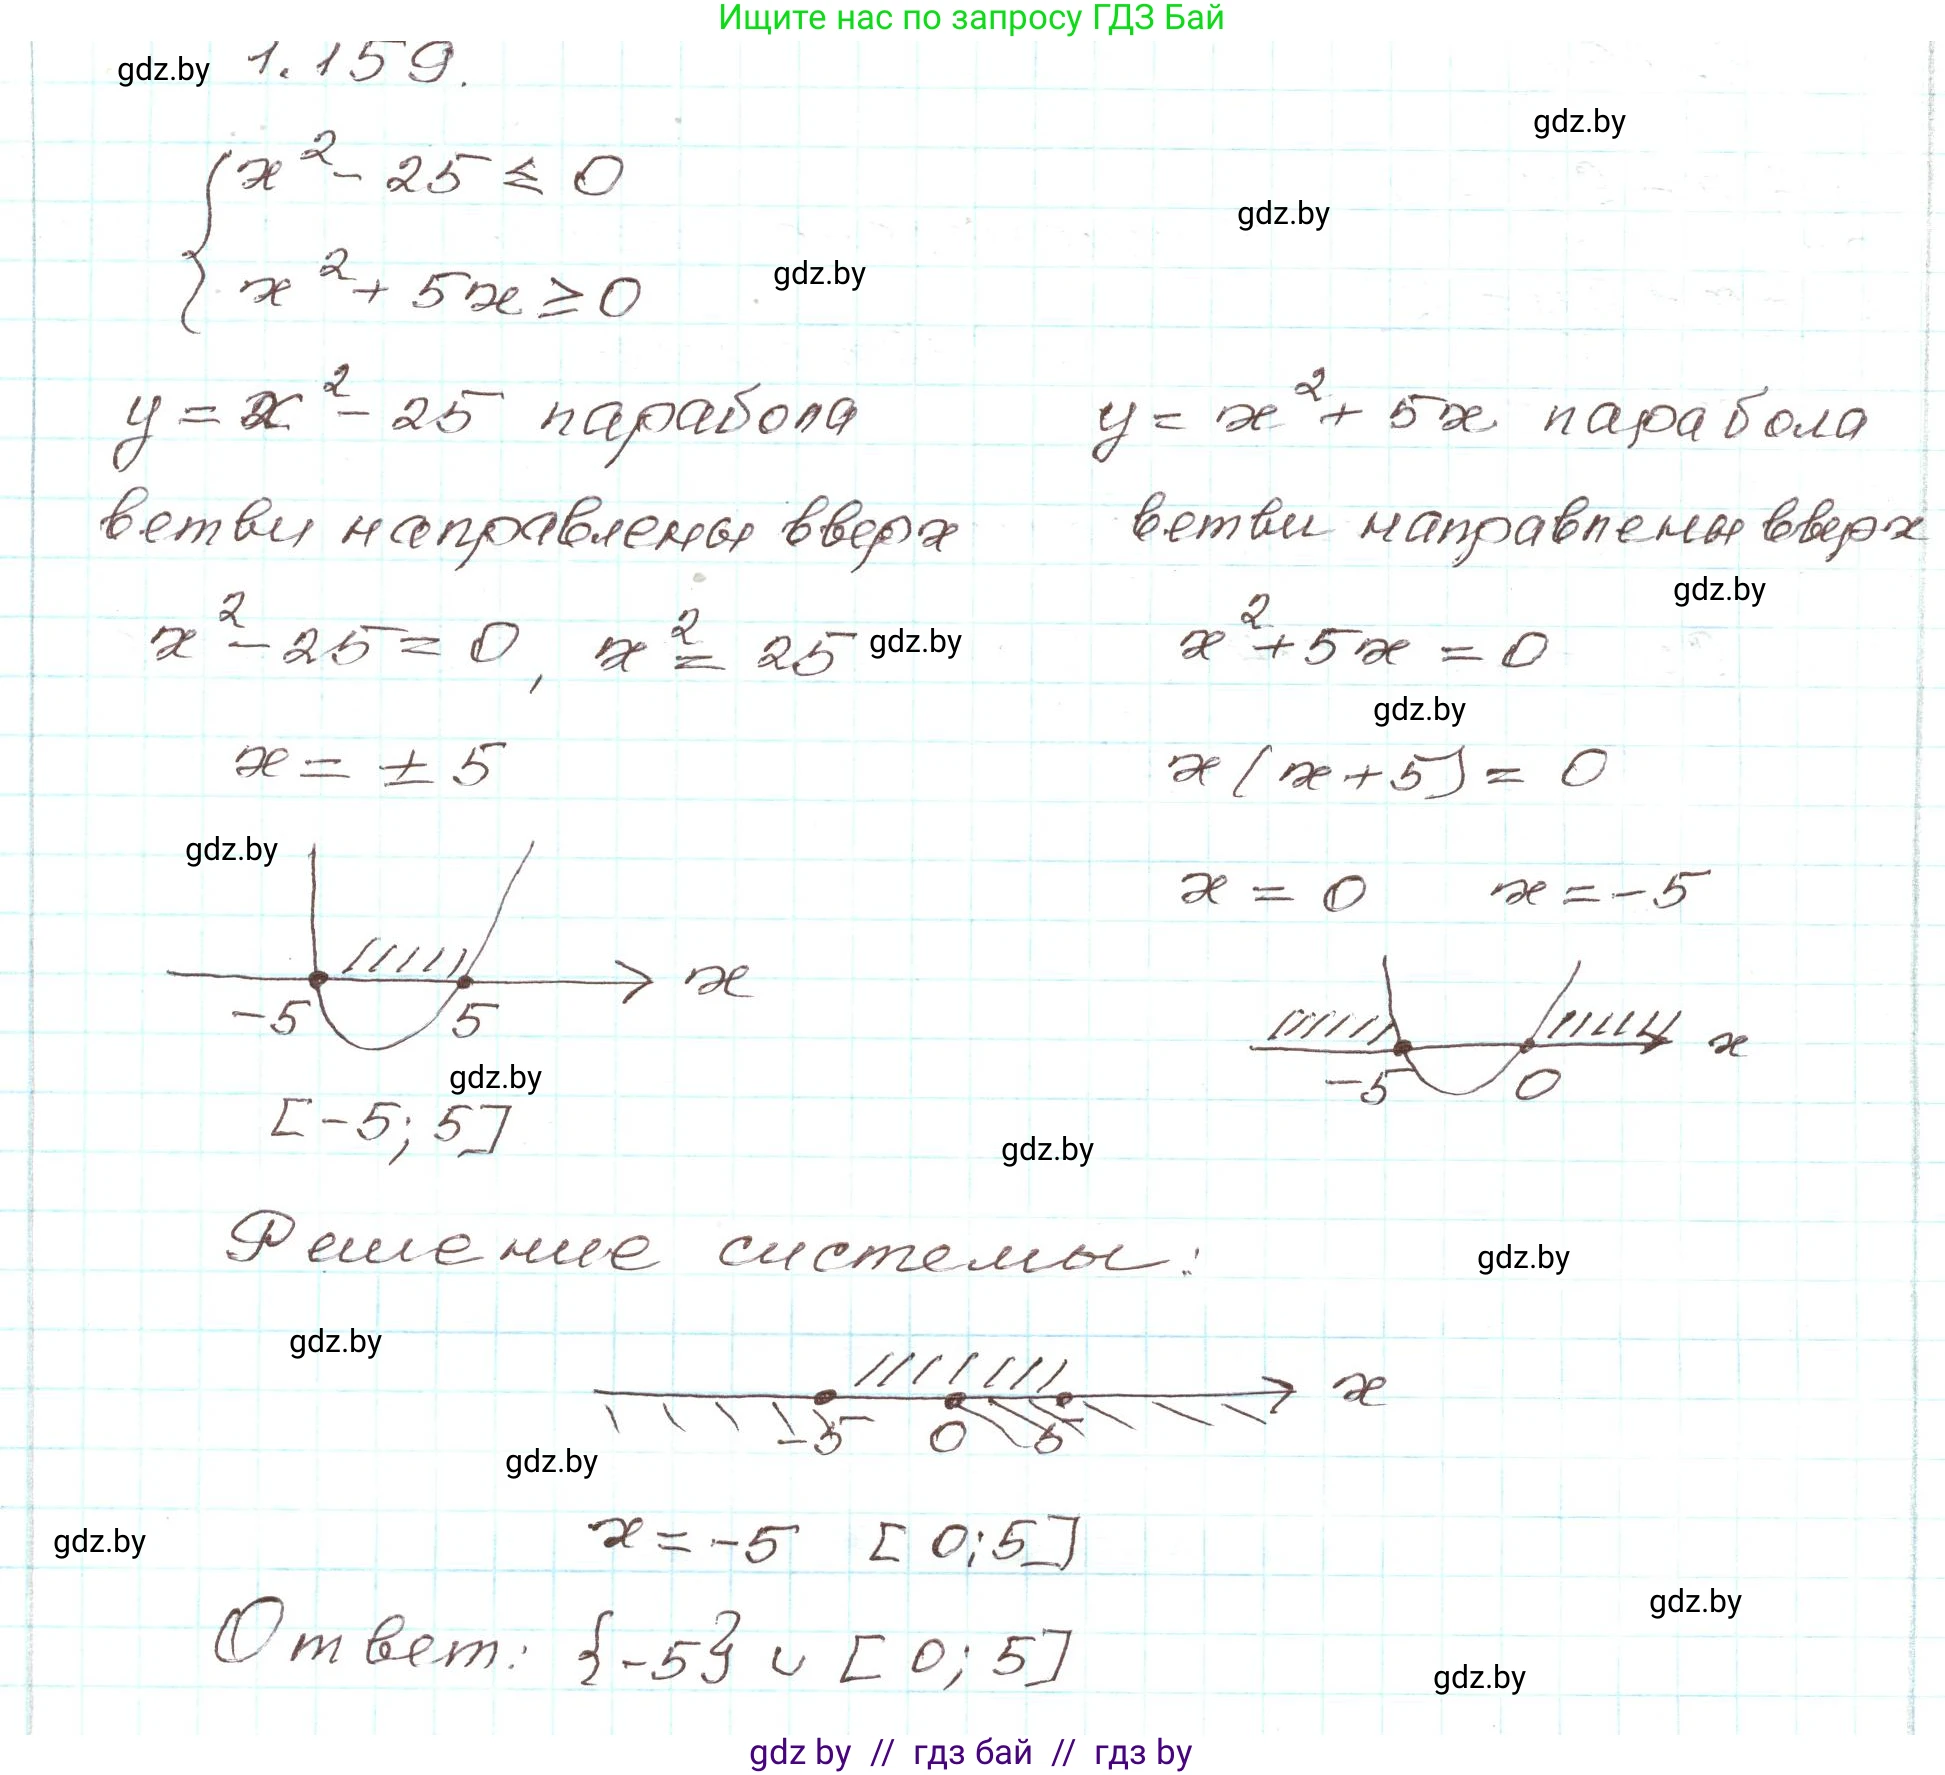 Ищите нас по запросу ГДЗ Бай
gdz.by 1.159.
gdz.by
x² - 25 ≤ 0
gdz.by
gdz.by
x² + 5x ≥ 0
y = x² - 25 парабола
y = x² + 5x парабола
ветви направлены вверх
ветви направлены вверх
gdz.by
x² - 25 = 0, x² = 25 gdz.by
x² + 5x = 0
gdz.by
x = ± 5
x(x+5) = 0
gdz.by
x = 0 x = -5
x
-5 5
x
-5 0
gdz.by
[-5; 5]
gdz.by
Решение системы:
gdz.by
gdz.by
x
-5 0 5
gdz.by
x = -5 [0; 5]
gdz.by
gdz.by
Ответ: {-5} ∪ [0; 5]
gdz.by
gdz by // гдз бай // гдз by